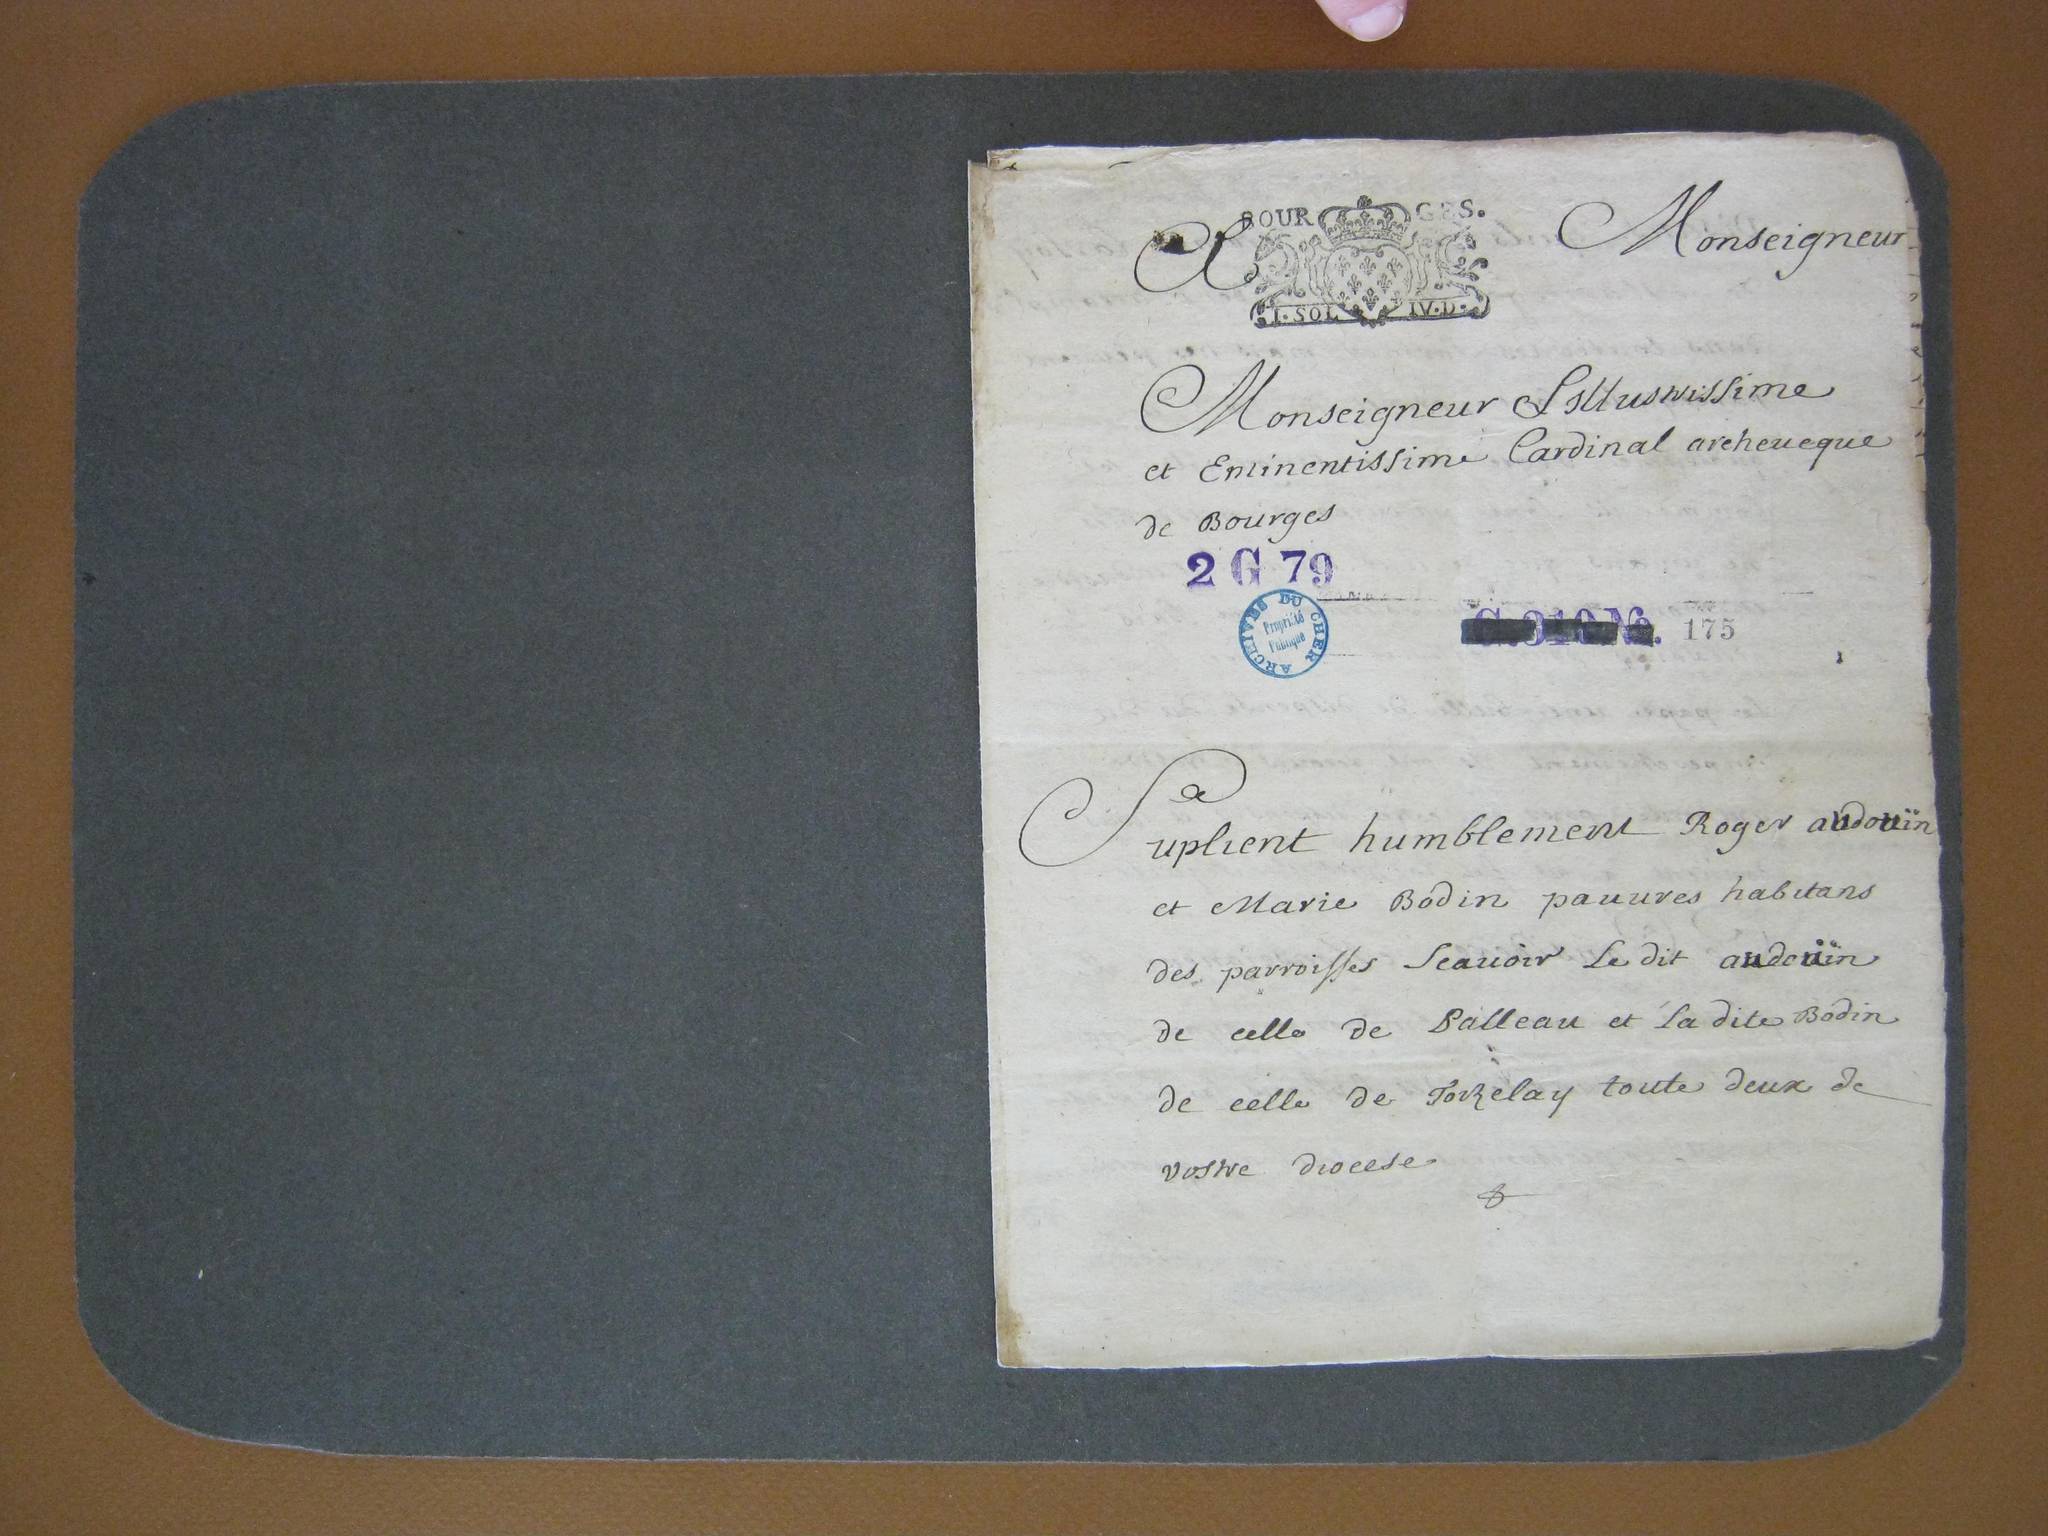 BOURGES.
A Monseigneur
I. SOL IV. D.
Monseigneur Lillustrissime
et Eminentissime Cardinal archeueque
de Bourges
2 G 79
ARCHIVES DU CHER
Propriété
Publique
G. 310 No. 175
Suplient humblement Roger audoüin
et Marie Bodin pauures habitans
des parroisses Scauoir Le dit audoüin
de celle de Palleau et La dite Bodin
de celle de Torzelay toute deux de
vostre diocese